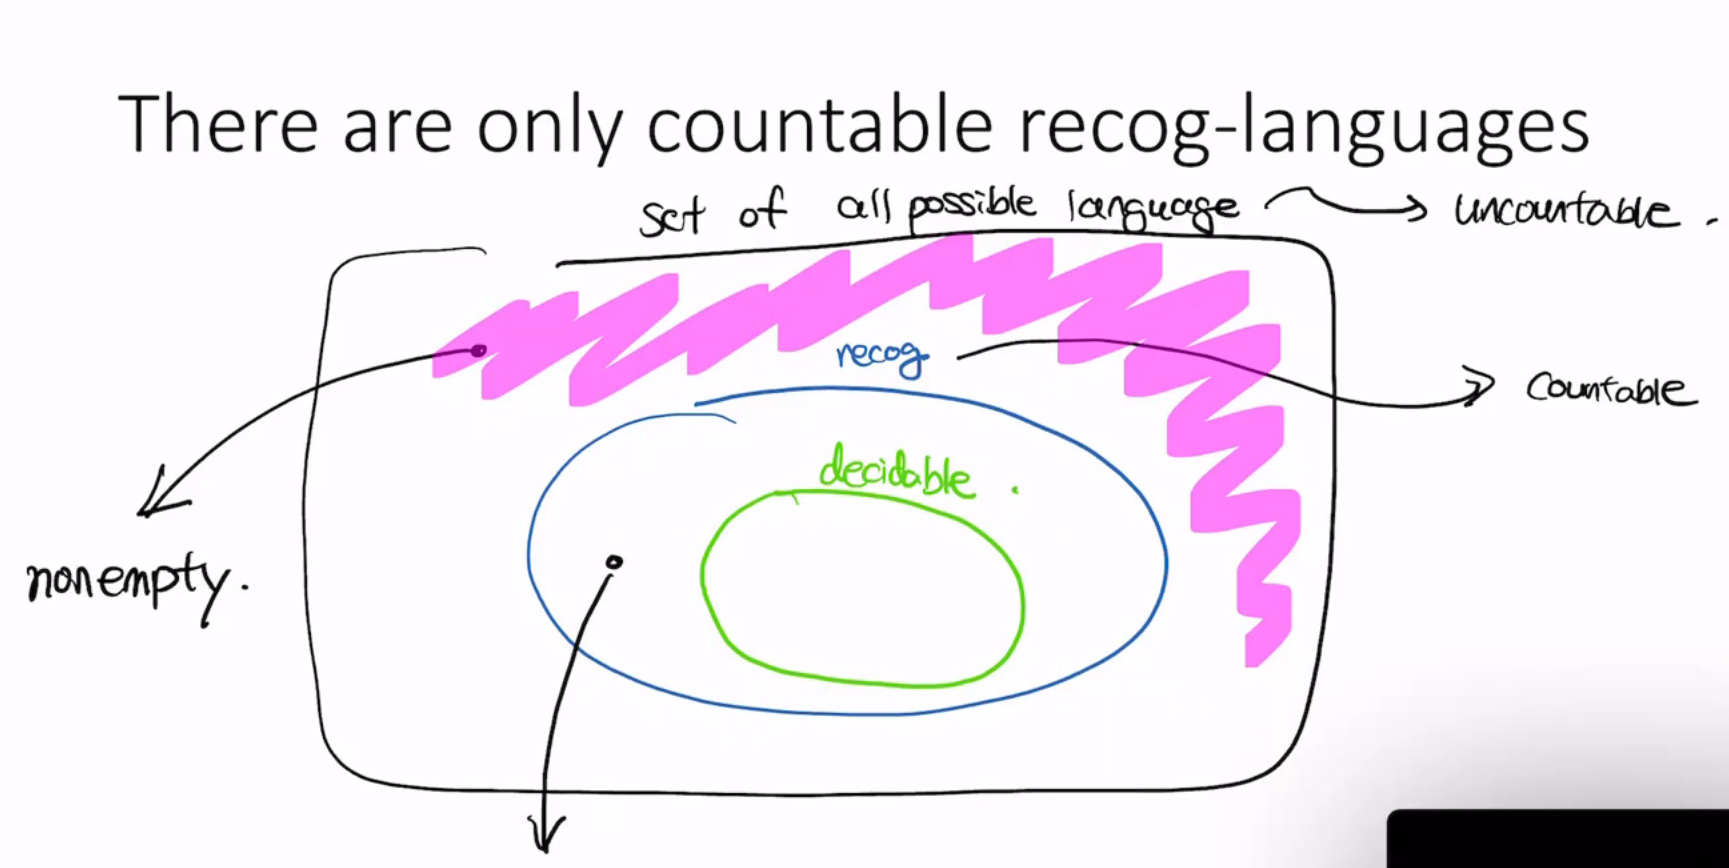 There are only countable recog-languages
set of all possible language → uncountable.
recog → Countable
decidable.
nonempty.